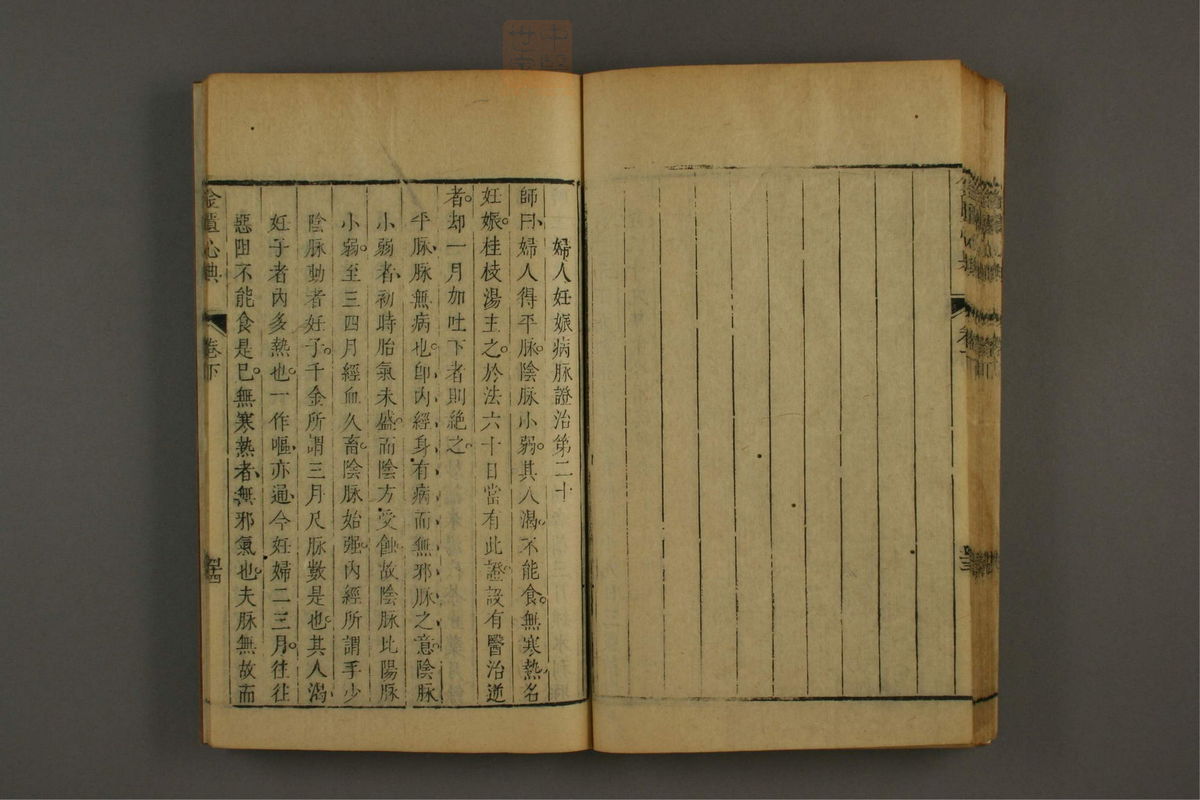 婦人妊娠病脉證治第二十
師曰、婦人得平脉。陰脉小弱。其人渴。不能食。無寒熱、名
妊娠。桂枝湯主之。於法六十日當有此證。設有醫治逆
者。却一月加吐下者、則絶之。
平脉、脉無病也。卽內經身有病而無邪脉之意。陰脉
小弱者、初時胎氣未盛。而陰方受蝕。故陰脉比陽脉
小弱。至三四月經血久畜。陰脉始强。內經所謂手少
陰脉動者妊子。千金所謂三月尺脉數是也。其人渴、
妊子者內多熱也。一作嘔、亦通、今妊婦二三月。往往
惡阻不能食是已。無寒熱者、無邪氣也。夫脉無故而
金匱心典
卷下